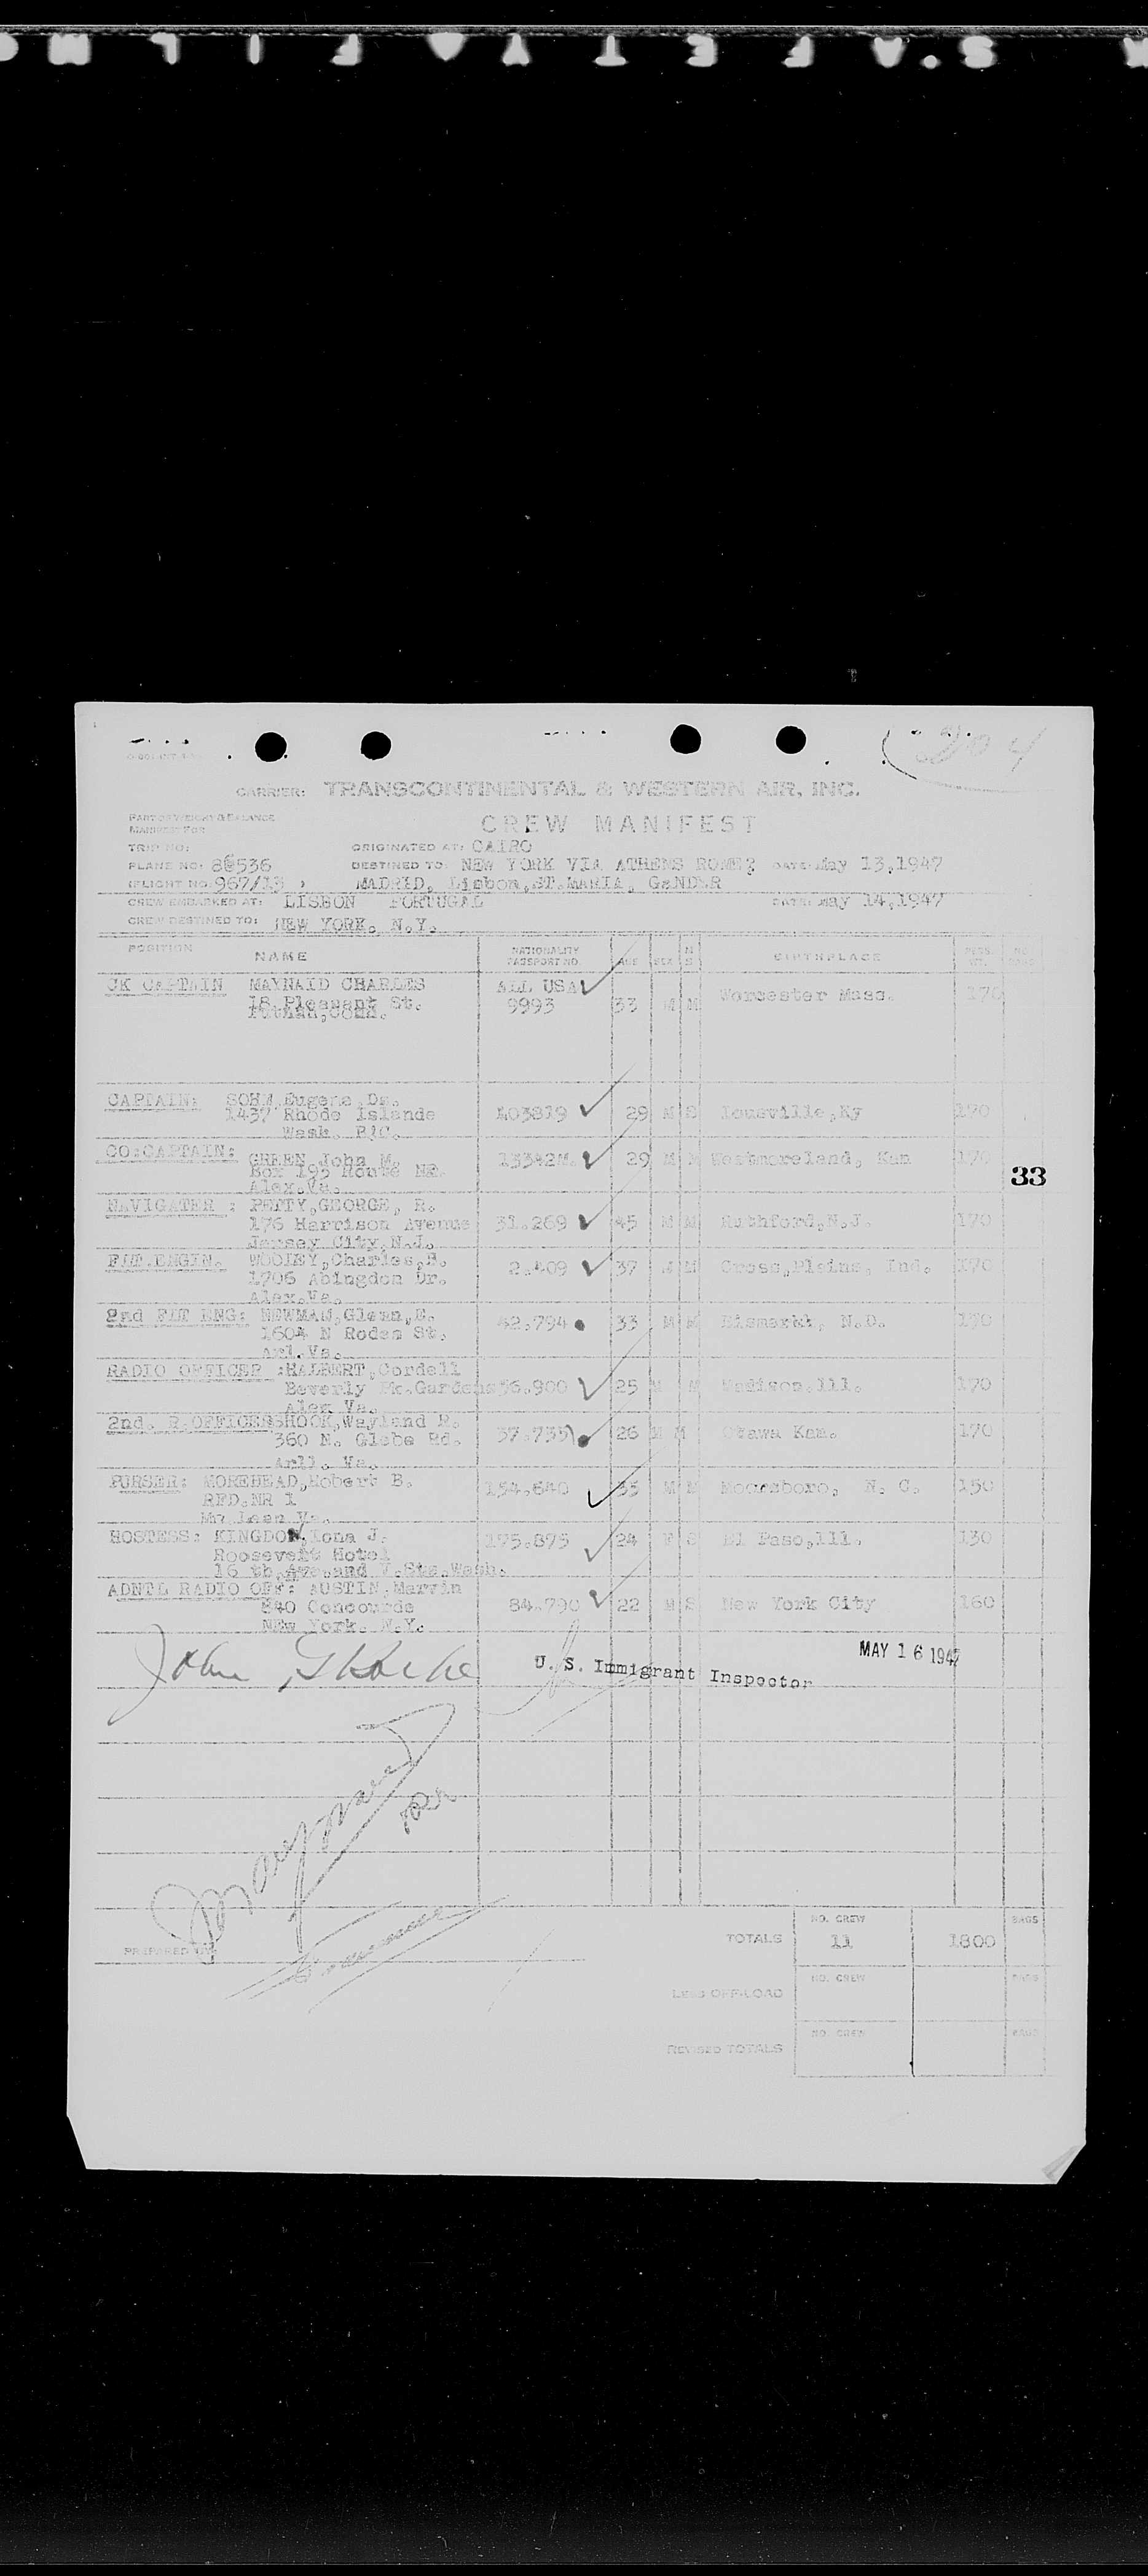 S.A F E T Y ♥ F I L M
204
CARRIER: TRANSCONTINENTAL & WESTERN AIR, INC.
PART OF WEIGHT & BALANCE
MANIFEST FOR
CREW MANIFEST
TRIP NO: ORIGINATED AT: CAIRO
PLANE NO. 86536 DESTINED TO: NEW YORK VIA ATHENS ROME? DATE: May 13,1947
(FLIGHT NO. 967/13 ) MADRID, Lisbon,ST.MARIA, GANDER
CREW EMBARKED AT: LISBON PORTUGAL DATE: May 14,1947
CREW DESTINED TO: NEW YORK. N.Y.
POSITION NAME NATIONALITY PASSPORT NO. AGE SEX M S BIRTHPLACE PERS. WT. NO
CK CAPTAIN MAYNAID CHARLES ALL USA
18 Pleasant St. 9993 33 M M Worcester Mass. 170
Putnam,Conn.
CAPTAIN: SOHM Eugene Ds.
1437 Rhode Islande 403819 29 M S Lousville,Ky 170
Wash. D.C.
CO:CAPTAIN: GREEN John M. 13342M. 29 M M Westmoreland, Kan 170
Box 195 Route NR.
Alex.Va.
33
NAVIGATER : PETTY,GEORGE, R.
176 Harrison Avenue 31.269 45 M M Ruthford,N.J. 170
Jersey City,N.J.
FLT.ENGIN. WOOLEY,Charles,B. 2.409 37 M M Cross,Plains, Ind. 170
1706 Abingdon Dr.
Alex.Va.
2nd FLT ENG: NEWMAN,Glenn,E. 42.794 33 M M Bismarkk, N.D. 170
1604 N Rodes St.
Arl.Va.
RADIO OFFICER :HALBERT,Cordell
Beverly Pk.Gardens 36.900 25 M M Madison.Ill. 170
Alex Va.
2nd. R.OFFICER SHOOK,Wayland R.
360 N. Glebe Rd. 37.735 26 M M Otawa Kan. 170
Arll. Va.
PURSER: MOREHEAD,Robert B. 154.640 35 M M Mooresboro, N. C. 150
RFD.NR 1
Mc Lean Va.
HOSTESS: KINGDON,Iona J. 175.875 24 F S El Paso,Ill. 130
Roosevelt Hotel
16 th Ave.and V.Sts.Wash.
ADNTL RADIO OFF: AUSTIN.Marvin
840 Concourde 84.790 22 M S New York City 160
NEw York. N.Y.
John
U. S. Immigrant Inspector
MAY 16 1947
PREPARED BY:
TOTALS NO. CREW 11 1800 BAGS
LESS OFF-LOAD NO. CREW BAGS
REVISED TOTALS NO. CREW BAGS